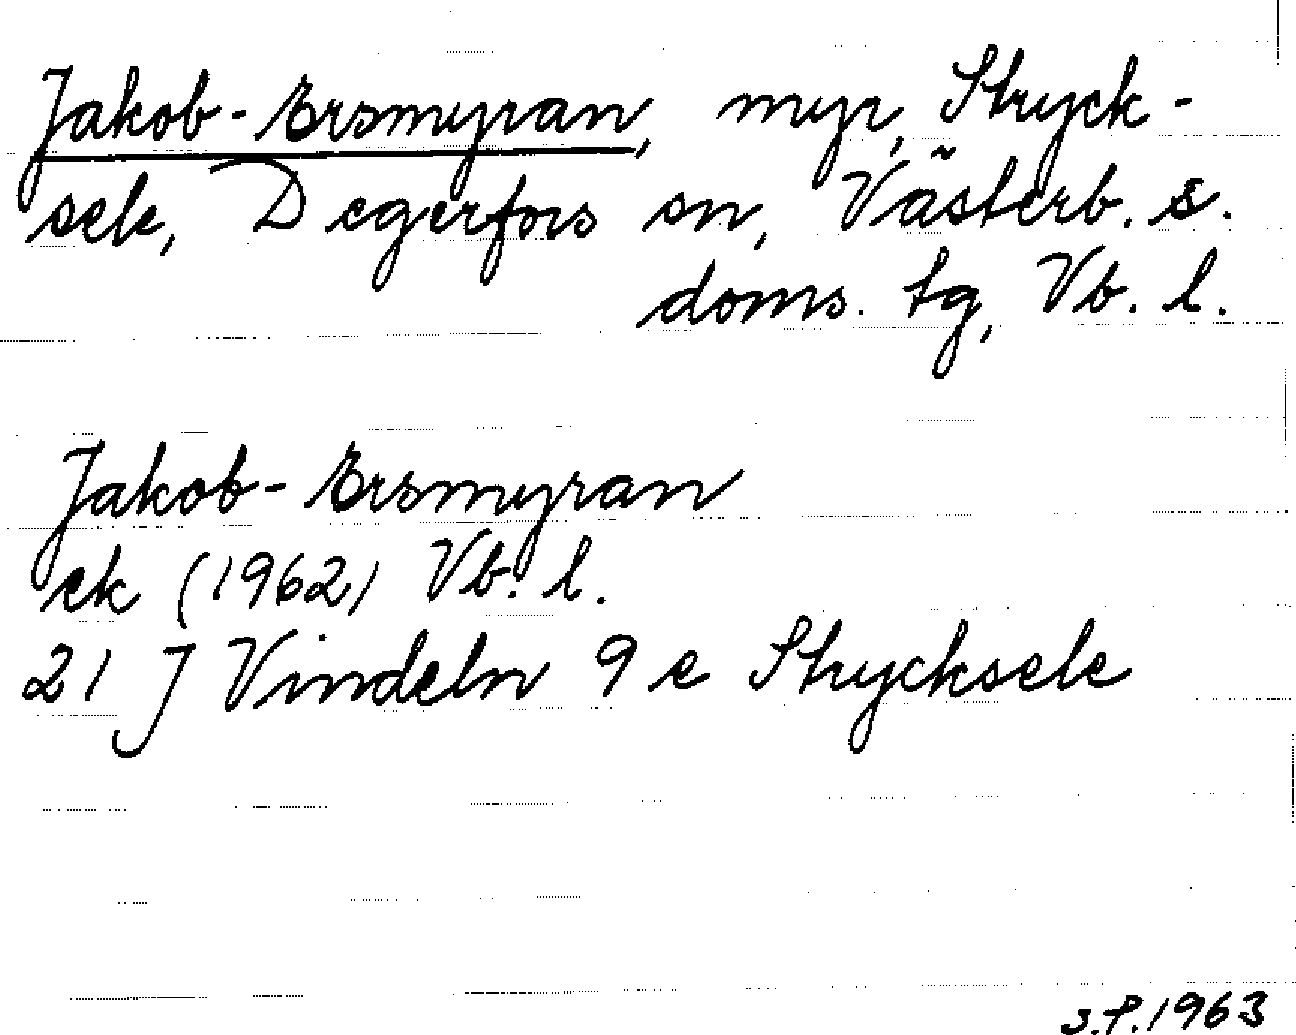 Jakob-Ersmyran, myr, Stryck-
sele, Degerfors sn, Västerb. s.
doms. tg, Vb. l.
Jakob-Ersmyran
ek (1962) Vb. l.
21 J Vindeln 9 e Strycksele
S.P. 1963